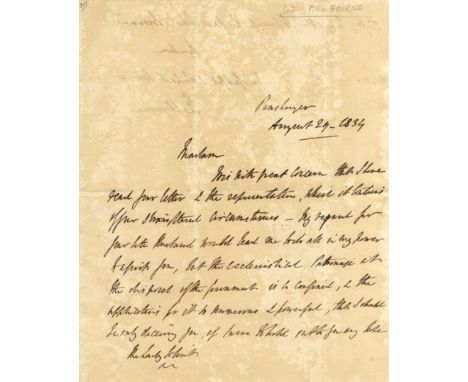 Ld MELBOURNE
Panshanger
August 29 - 1834
Madam
It is with great concern that I have
read your letter & the representation, which it contains
of your straightened circumstances - My regard for
your late Husband would lead me to do all in my power
to assist you, but the ecclesiastical Patronage at
the disposal of the government is so confined, & the
applications for it so numerous & powerful, that I should
be only deceiving you if I were to hold out to you any hope
The Lady